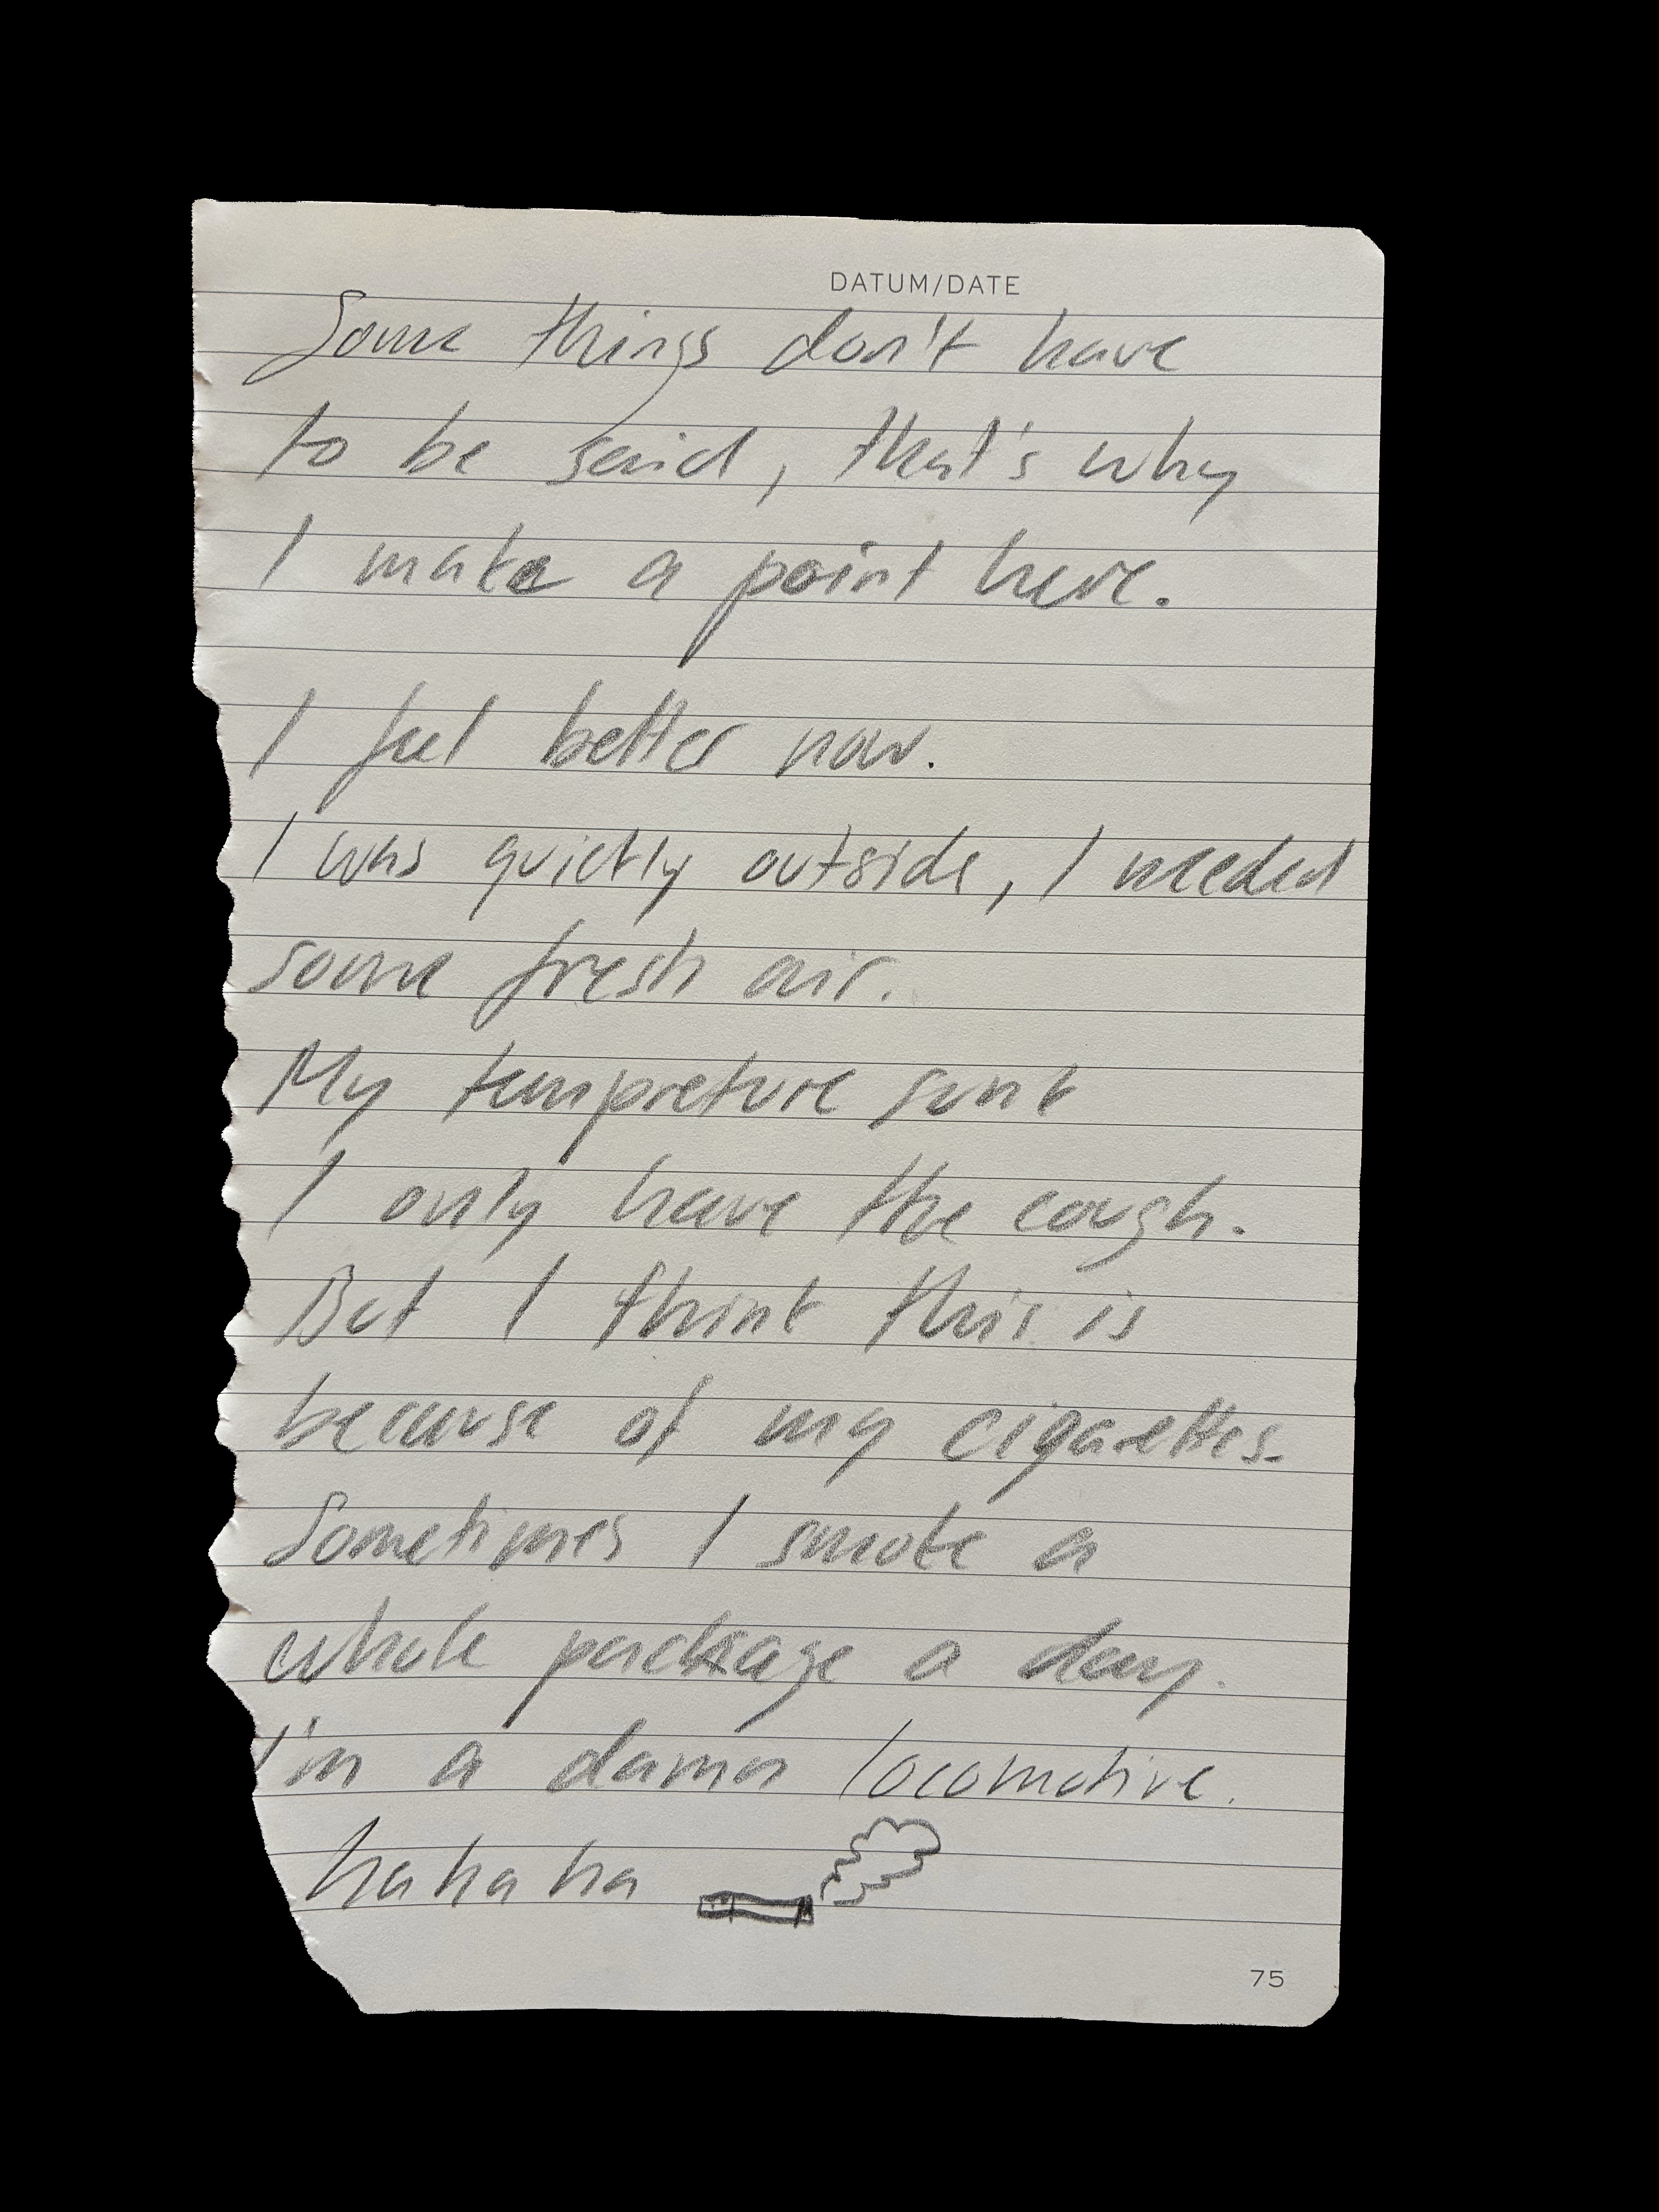 DATUM/DATE
Some things don't have
to be said, that's why
I make a point here.
I feel better now.
I was quietly outside, I needed
some fresh air.
My tempreture sunk
I only have the cough.
But I think this is
because of my cigarettes.
Sometimes I smoke a
whole package a day.
I'm a damn locomotive.
hahaha
75